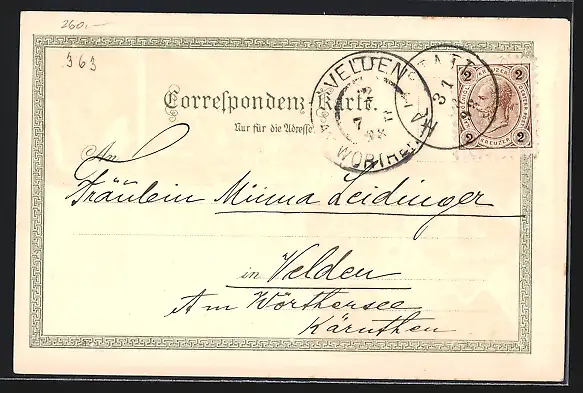 260.-
363
Correspondenz-Karte.
Nur für die Adresse.
VELDEN
WÖRTHE
2
7
98
31
98
2 KREUZER 2
2 KREUZER 2
An
Fräulein Minna Leidinger
in Velden
Am Wörthersee
Kärnthen